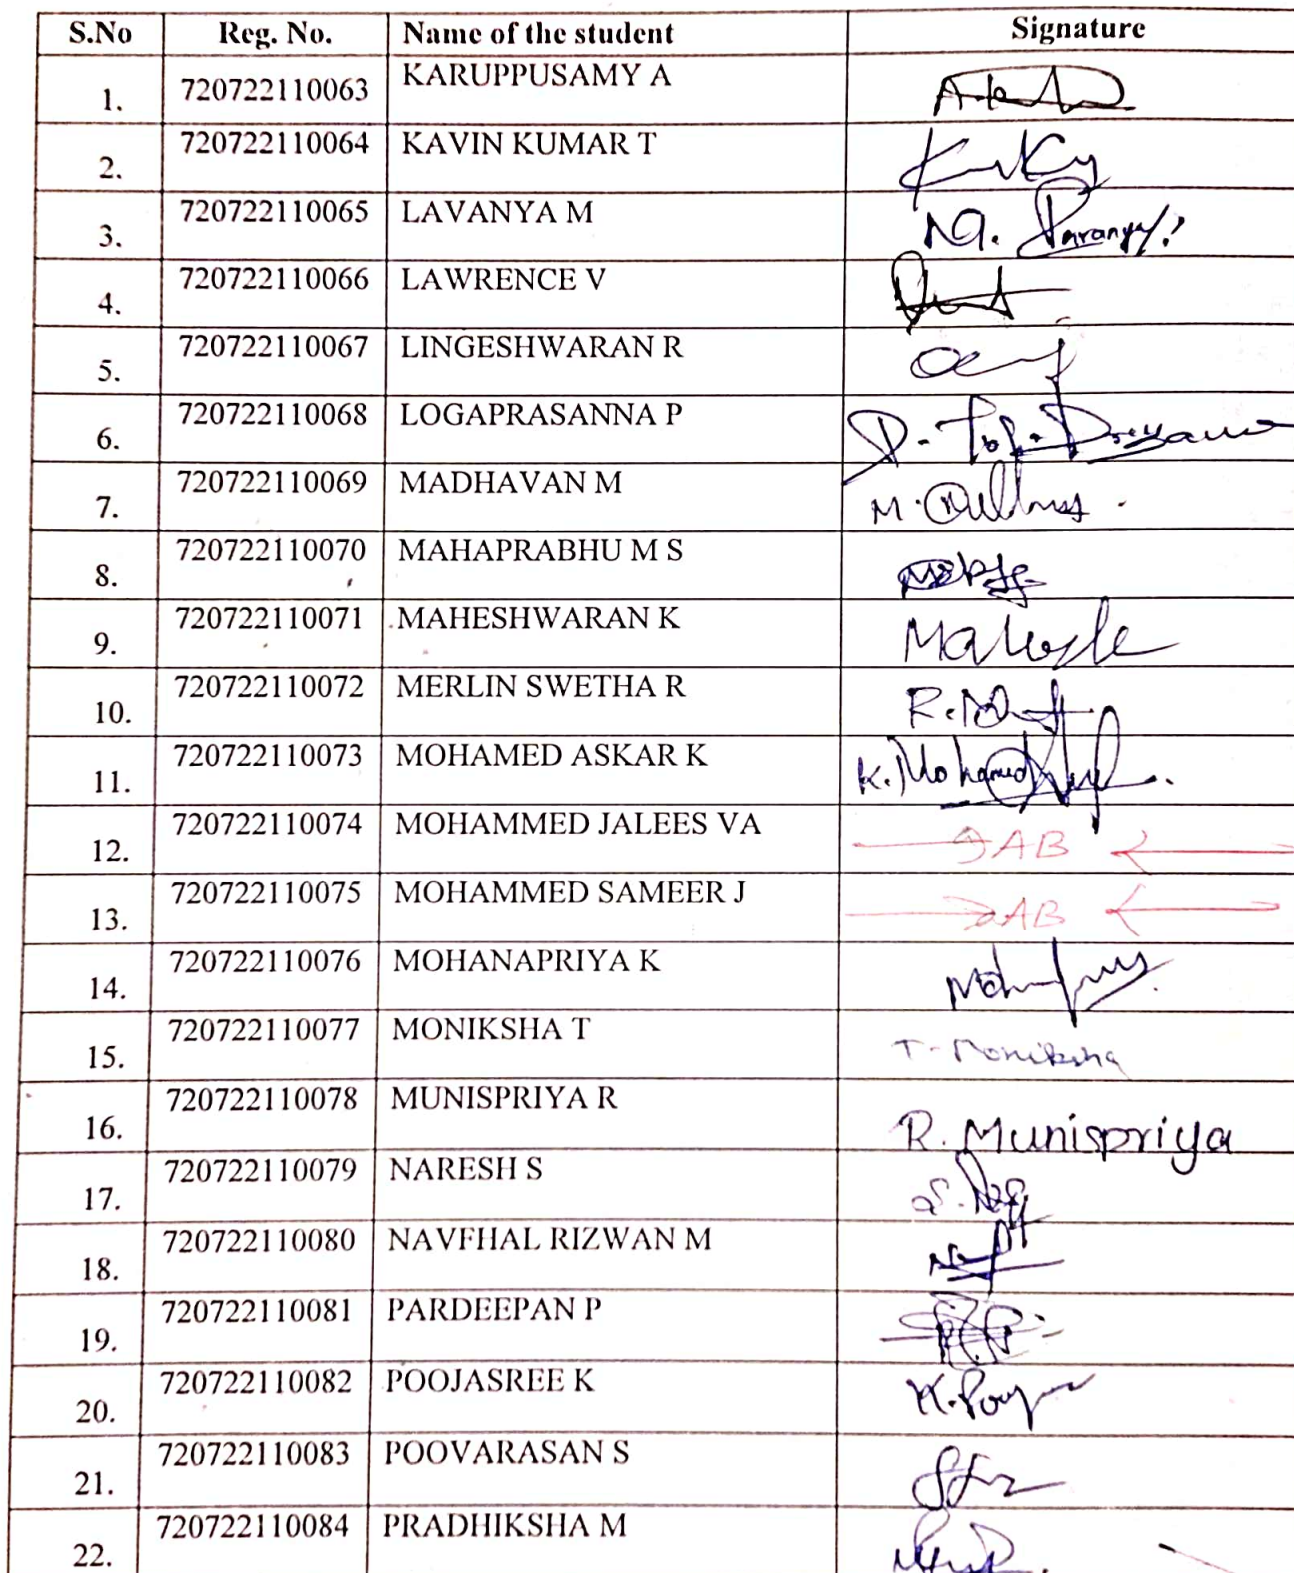 S.No Reg. No. Name of the student Signature
1. 720722110063 KARUPPUSAMY A
2. 720722110064 KAVIN KUMAR T
3. 720722110065 LAVANYA M M.
4. 720722110066 LAWRENCE V
5. 720722110067 LINGESHWARAN R
6. 720722110068 LOGAPRASANNA P P.
7. 720722110069 MADHAVAN M M.
8. 720722110070 MAHAPRABHU M S
9. 720722110071 MAHESHWARAN K
10. 720722110072 MERLIN SWETHA R R.
11. 720722110073 MOHAMED ASKAR K K. Mohamed
12. 720722110074 MOHAMMED JALEES VA AB
13. 720722110075 MOHAMMED SAMEER J AB
14. 720722110076 MOHANAPRIYA K
15. 720722110077 MONIKSHA T T. Moniksha
16. 720722110078 MUNISPRIYA R R. Munispriya
17. 720722110079 NARESH S S.
18. 720722110080 NAVFHAL RIZWAN M
19. 720722110081 PARDEEPAN P
20. 720722110082 POOJASREE K K.
21. 720722110083 POOVARASAN S
22. 720722110084 PRADHIKSHA M